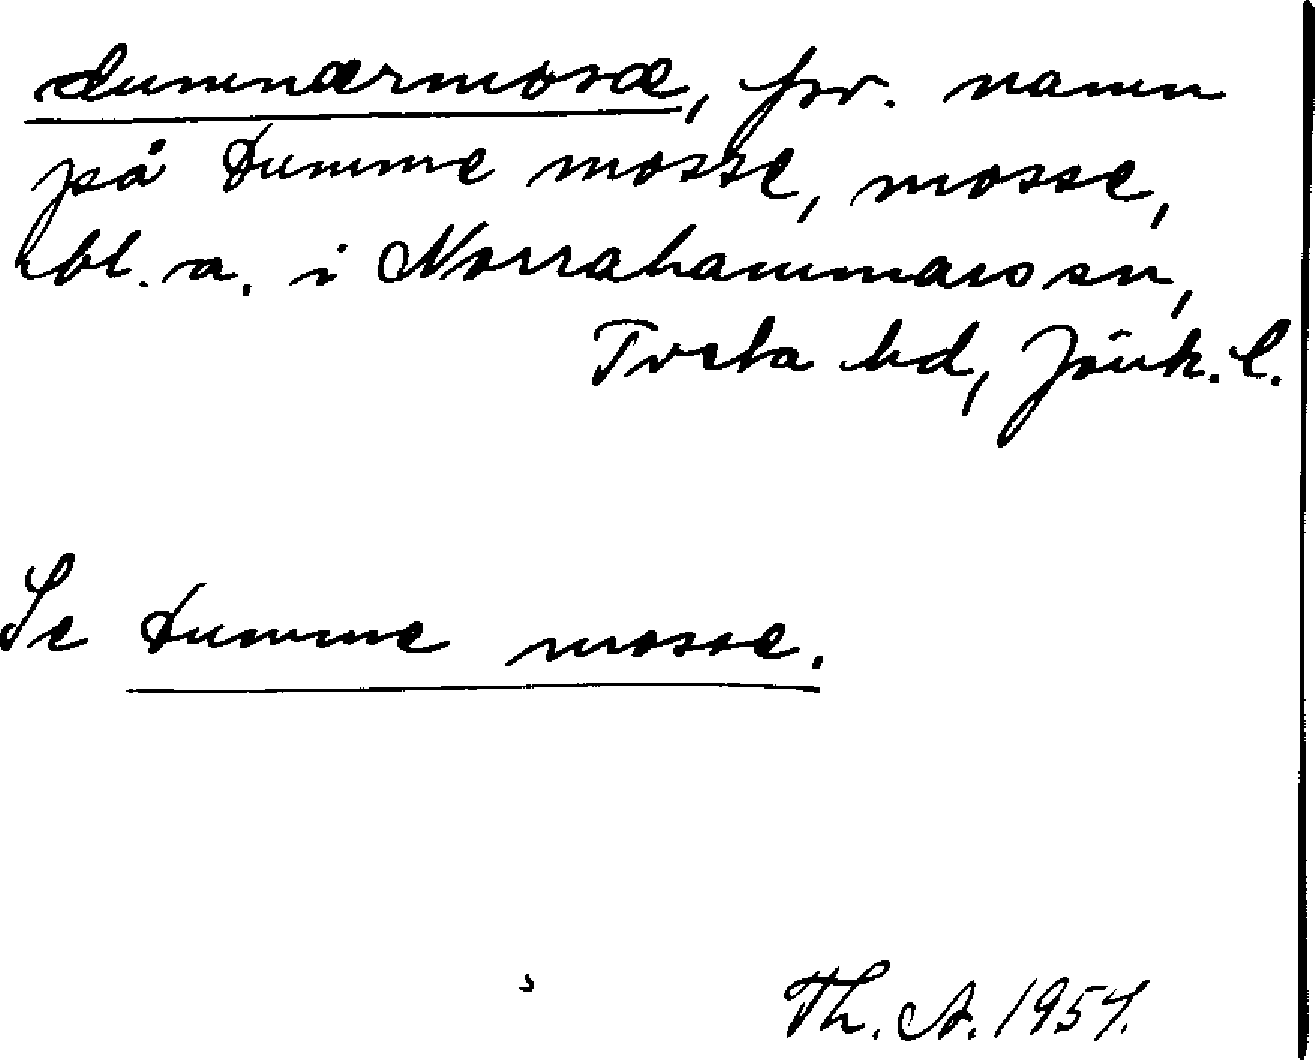 dummærmosæ, fsv. namn
på Dumme mosse, mosse,
bl. a. i Norrahammars sn,
Tveta hd, Jönk. l.
Se Dumme mosse.
Th. A. 1957.